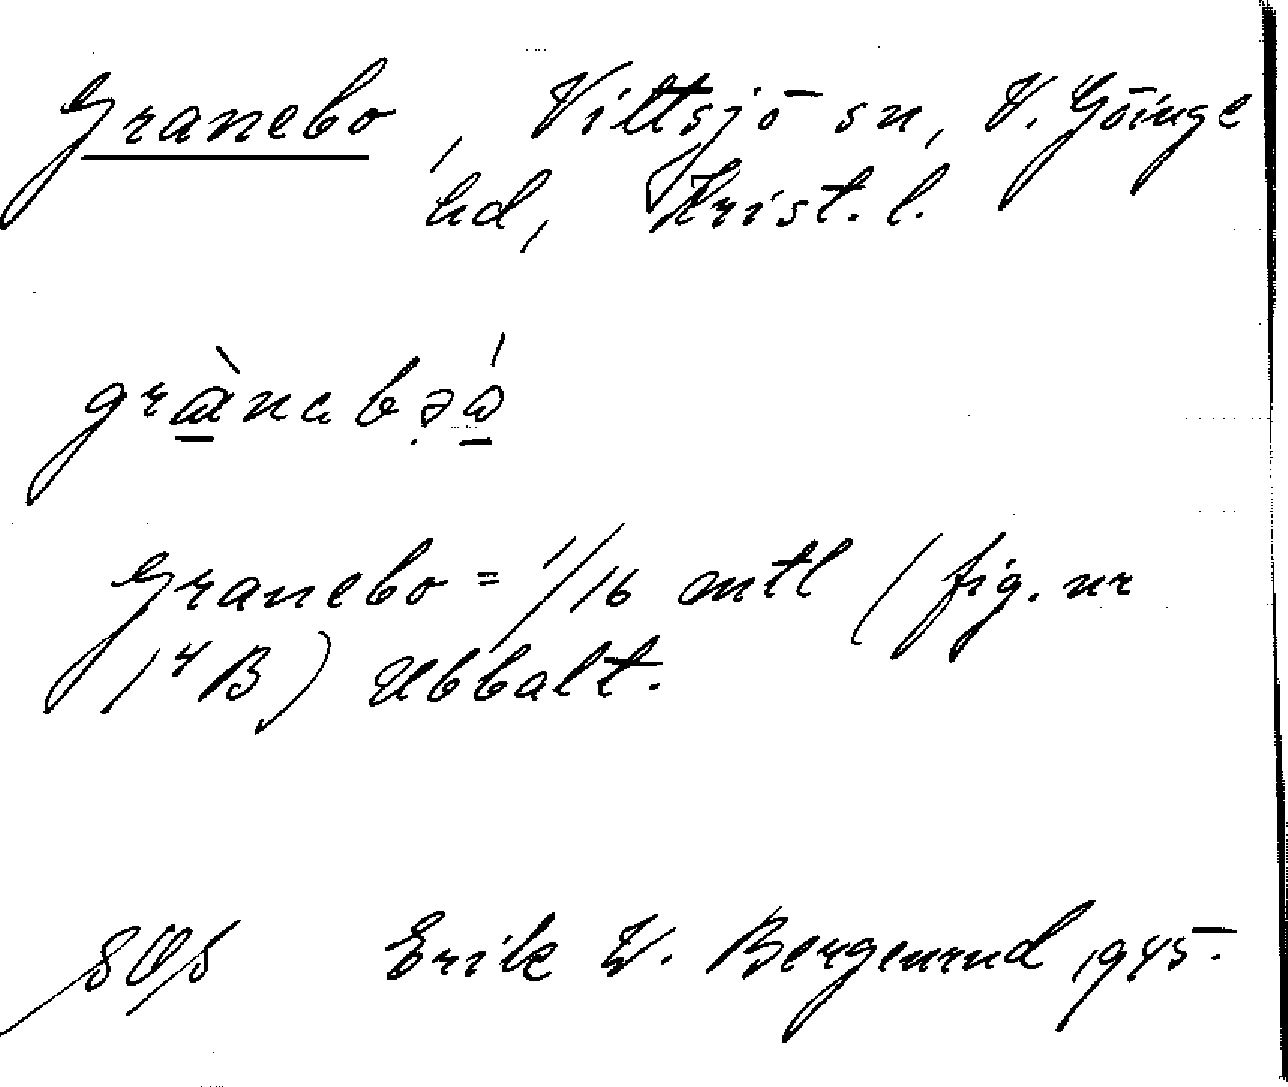 Granebo, Vittsjö sn, V. Göinge
hd, Krist. l.
Granebo = 1/16 mtl (fig. nr
1⁴B) Ubbalt.
Erik W. Bergenrud 1945.